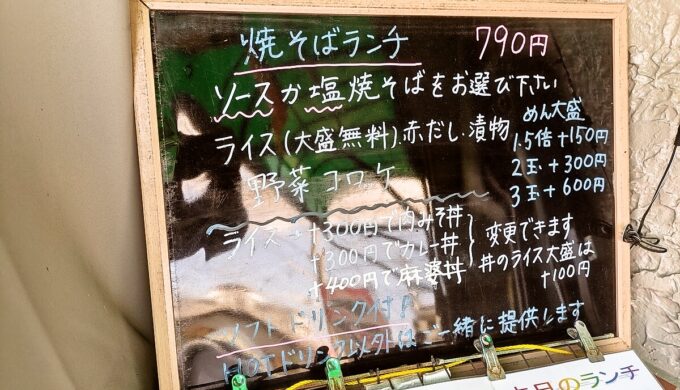 焼そばランチ 790円
ソースか塩焼そばをお選び下さい
ライス(大盛無料).赤だし.漬物
野菜コロッケ
めん大盛
1.5倍+150円
2玉+300円
3玉+600円
ライス→+300円で肉みそ丼
+300円でカレー丼
+400円で麻婆丼
変更できます
丼のライス大盛は
+100円
ソフトドリンク付!
HOTドリンク以外はご一緒に提供します
本日のランチ